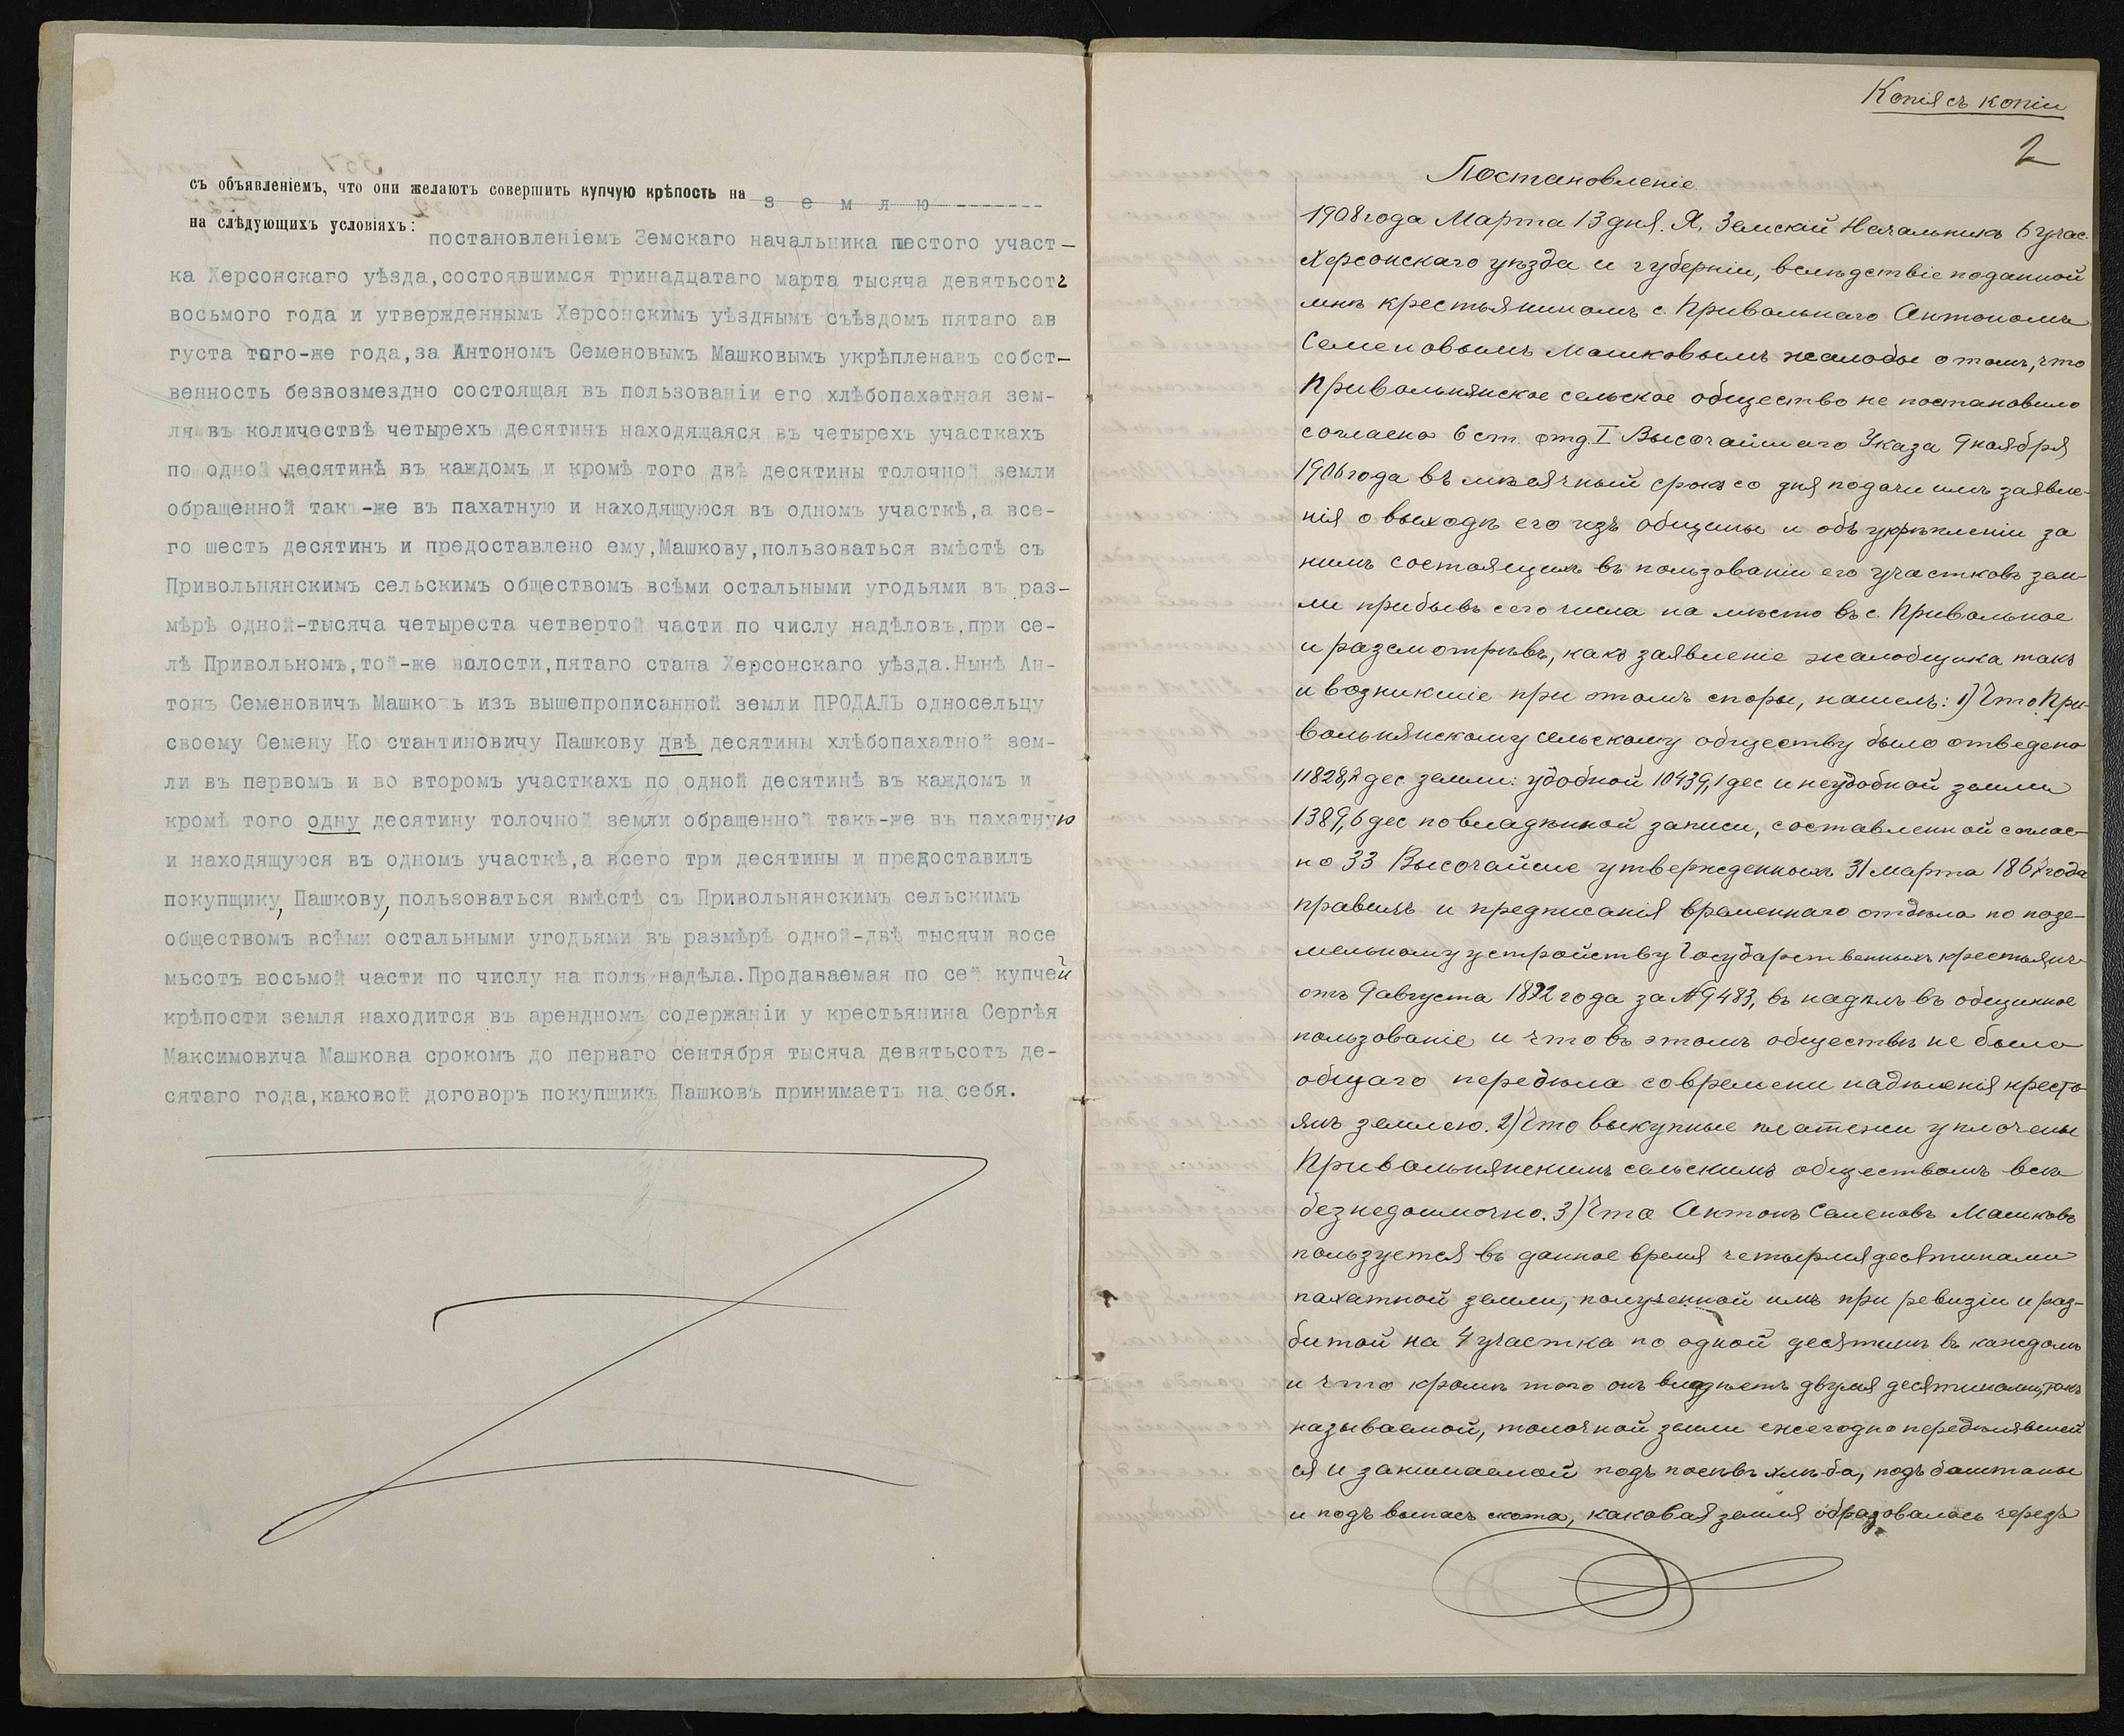 съ объявленіемъ, что они желаютъ совершить купчую крѣпость на з е м л ю --------
на слѣдующихъ условіяхъ:
постановленіемъ Земскаго начальника шестого участ-
ка Херсонскаго уѣзда,состоявшимся тринадцатаго марта тысяча девятьсотъ
восьмого года и утвержденнымъ Херсонскимъ уѣзднымъ съѣздомъ пятаго ав
густа того-же года,за Антономъ Семеновымъ Машковымъ укрѣпленавъ собст-
венность безвозмездно состоящая въ пользованіи его хлѣбопахатная зем-
ля въ количествѣ четырехъ десятинъ находящаяся въ четырехъ участкахъ
по одной десятинѣ въ каждомъ и кромѣ того двѣ десятины толочной земли
обращенной такъ-же въ пахатную и находящуюся въ одномъ участкѣ,а все-
го шесть десятинъ и предоставлено ему,Машкову,пользоваться вмѣстѣ съ
Привольнянскимъ сельскимъ обществомъ всѣми остальными угодьями въ раз-
мѣрѣ одной-тысяча четыреста четвертой части по числу надѣловъ,при се-
лѣ Привольномъ,той-же волости,пятаго стана Херсонскаго уѣзда.Нынѣ Ан-
тонъ Семеновичъ Машковъ изъ вышепрописанной земли ПРОДАЛЪ односельцу
своему Семену Ко стантиновичу Пашкову двѣ десятины хлѣбопахатной зем-
ли въ первомъ и во второмъ участкахъ по одной десятинѣ въ каждомъ и
кромѣ того одну десятину толочной земли обращенной такъ-же въ пахатную
и находящуюся въ одномъ участкѣ,а всего три десятины и предоставилъ
покупщику, Пашкову, пользоваться вмѣстѣ съ Привольнянскимъ сельскимъ
обществомъ всѣми остальными угодьями въ размѣрѣ одной-двѣ тысячи восе
мьсотъ восьмой части по числу на полъ надѣла.Продаваемая по сей купчей
крѣпости земля находится въ арендномъ содержаніи у крестьянина Сергѣя
Максимовича Машкова срокомъ до перваго сентября тысяча девятьсотъ де-
сятаго года,каковой договоръ покупщикъ Пашковъ принимаетъ на себя.
Копія съ копіи
2
Постановленіе
1908 года Марта 13 дня. Я, Земскій Начальникъ 6 учас.
Херсонскаго уѣзда и губерніи, вслѣдствіе поданной
мнѣ крестьяниномъ с. Привольнаго Антономъ
Семеновымъ Машковымъ жалобы о томъ, что
Привольнянское сельское общество не постановило
согласно 6 ст. отд. I Высочайшаго Указа 9 ноября
1906 года въ мѣсячный срокъ со дня подачи имъ заявле-
нія о выходѣ его изъ общины и объ укрѣпленіи за
нимъ состоящихъ въ пользованіи его участковъ зем-
ли прибывъ сего числа на мѣсто въ с. Привольное
и разсмотрѣвъ, какъ заявленіе жалобщика такъ
и возникшіе при этомъ споры, нашелъ: 1) Что При-
вольнянскому сельскому обществу было отведено
дес земли: удобной 10439,1 дес и неудобной земли
1389,6 дес по владѣнной записи, составленной соглас-
но 33 Высочайше утвержденныхъ 31 марта 1867 года
правилъ и предписанія временнаго отдѣла по позе-
мельному устройству Государственныхъ крестьянъ
отъ 9 августа 1872 года за № 9483, въ надѣлъ въ общинное
пользованіе и что въ этомъ обществѣ не было
общаго передѣла со времени надѣленія кресть
янъ землею. 2) Что выкупные платежи уплочены
Привольнянскимъ сельскимъ обществомъ всѣ
безнедоимочно. 3) Что Антонъ Семеновъ Машковъ
пользуется въ данное время четырмя десятинами
пахатной земли, полученной имъ при ревизіи и раз-
битой на 4 участка по одной десятинѣ въ каждомъ
и что кромѣ того онъ владѣетъ двумя десятинами, такъ
называемой, толочной земли ежегодно передѣлявшей
ся и занимаемой подъ посѣвъ хлѣба, подъ баштаны
и подъ выпасъ скота, каковая земля образовалась чрезъ